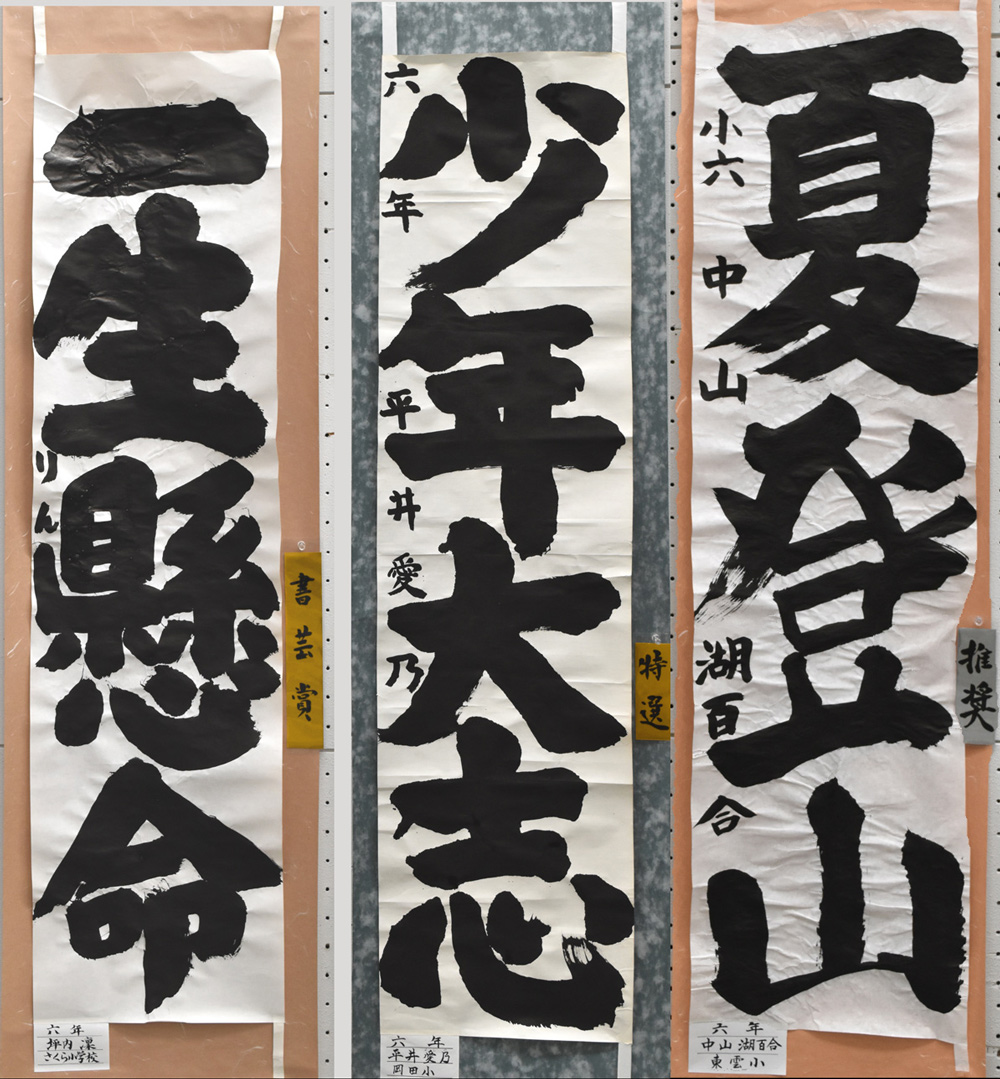 一生懸命
りん
書芸賞
六年
坪内凛
さくら小学校
少年大志
六年平井愛乃
特選
六年
平井愛乃
岡田小
夏登山
小六中山湖百合
推奨
六年
中山湖百合
東雲小